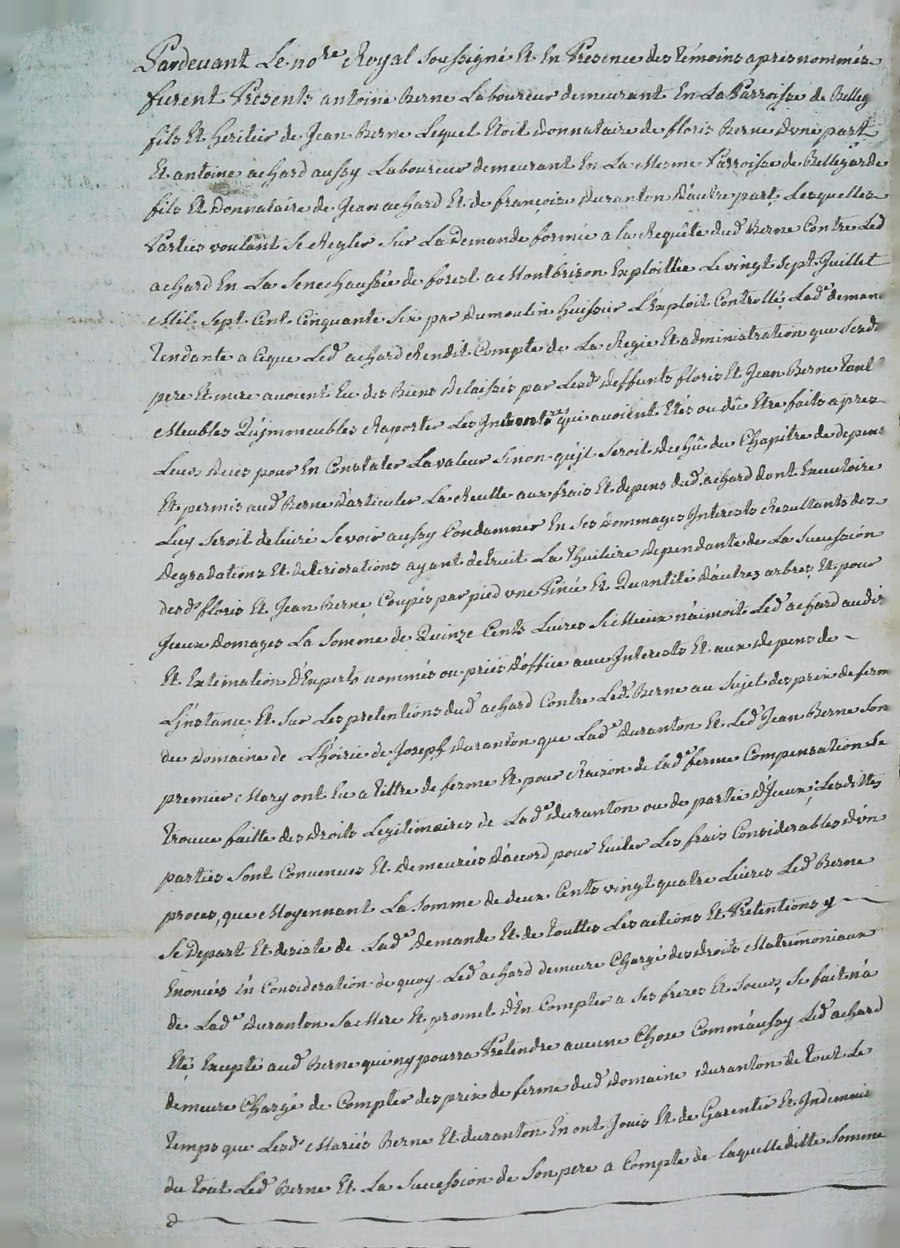 Pardevant Le no.re Royal Soussigné Et En Presence des témoins apres nommés
furent Presents antoine Berne Laboureur demeurant En La Parroisse de Belleg
fils Et heritier de Jean Berne Lequel Etoit donnataire de floris Berne d'une part
Et antoine achard aussy Laboureur demeurant En La Mesme Parroisse de Bellegarde
fils Et donnataire de Jean achard Et de françoise duranton d'autre part, Lesquelles
Parties voulant Se Regler Sur La demande formée a la Requête dud Berne Contre Led
achard En La Senechaussée de forest a Montbrison Exploittée Le vingt Sept Juillet
Mil Sept Cent Cinquante Six par dumoulin huissier L'Exploit Controllé, Lad.e deman
Tendante a Ceque Led achard Rendit Compte de La Regie Et administration que Sesd
pere Et mere avoient Eu des Biens delaissés par Lesd deffunts floris Et Jean Berne tant
Meubles Qu'jmmeubles Raporter Les Inventres qui avoient Etés ou dû Etre faits apres
Leurs deces pour En Constater La valeur Sinon qu'jl Seroit dechû du Chapitre de depens
Et permis aud Berne d'articuler La Recette aux frais Et depens dud. achard dont Executoire
Luy Seroit delivré Se voir aussy Condamner En Ses dommages Interests Resultants des
degradations Et deteriorations ayant detruit La thuiliere dependante de La Succession
desd.s floris Et Jean Berne, Coupés par pied vne Pinée Et Quantité d'autres arbres, Et pour
Jceux domages La Somme de Quinze Cents Livres Si Mieux n'aimoit Led achard au dir
Et Extimation d'Experts nommés ou priés d'office avec Interests Et aux depens de
L'jnstance, Et Sur Les pretentions dud achard Contre Led. Berne au Sujet des prix de ferm
du domaine de L'hoirie de Joseph duranton que Lad.e duranton Et Led Jean Berne Son
premier Mary ont Eu a Tittre de ferme Et pour Raison de lad.e ferme Compensation Se
trouve faitte des droits Legitimaires de Lad.e duranton ou de partie d'Jceux; Lesdittes
parties Sont Convenues Et demeurées d'accord pour Eviter Les frais Considerables d'vn
proces, que Moyennant La Somme de deux Cents vingt quatre Livres Led Berne
Se Depart Et desiste de Lad.e demande Et de touttes Les actions Et Pretentions y
Enoncées En Consideration de quoy Led achard demeure Chargé des droits Matrimoniaux
de Lad.e duranton Sa Mere Et promet d'En Compter a Ses freres Et Soeurs, Se fait n'a
Eté Excepté aud Berne qui ny pourra Pretendre aucune Chose Comm'aussy Led achard
demeure Chargé de Compter des prix de ferme dud domaine duranton de tout Le
temps que Lesd Mariés Berne Et duranton En ont Jouis Et de Garentir Et Indemnis
du tout Led Berne Et La Succession de Son pere a Compte de laquelle ditte Somme